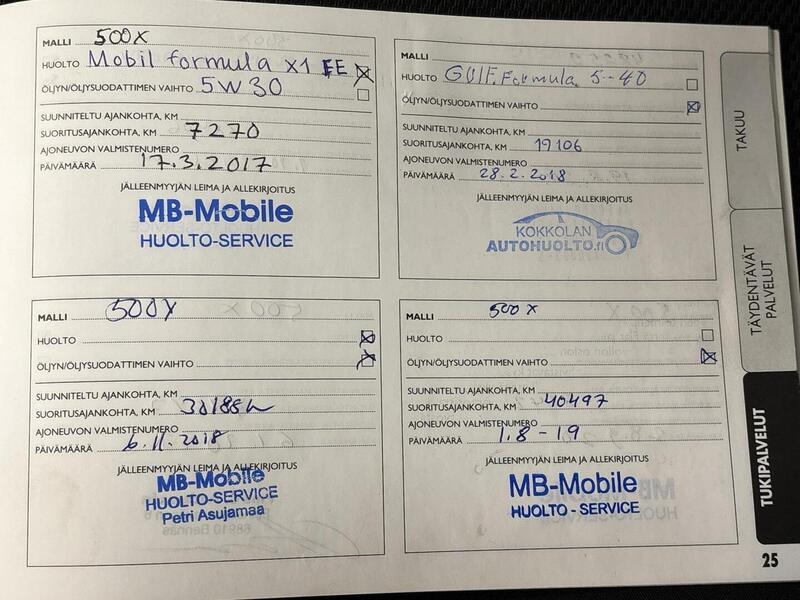 MALLI 500X
HUOLTO Mobil formula X1 FE
ÖLJYN/ÖLJYSUODATTIMEN VAIHTO 5W30
SUUNNITELTU AJANKOHTA, KM
SUORITUSAJANKOHTA, KM 7270
AJONEUVON VALMISTENUMERO
PÄIVÄMÄÄRÄ 17.3.2017
JÄLLEENMYYJÄN LEIMA JA ALLEKIRJOITUS
MB-Mobile
HUOLTO-SERVICE
MALLI
HUOLTO GULF. Formula 5-40
ÖLJYN/ÖLJYSUODATTIMEN VAIHTO
SUUNNITELTU AJANKOHTA, KM
SUORITUSAJANKOHTA, KM 19106
AJONEUVON VALMISTENUMERO
PÄIVÄMÄÄRÄ 28.2.2018
JÄLLEENMYYJÄN LEIMA JA ALLEKIRJOITUS
KOKKOLAN
AUTOHUOLTO.fi
MALLI 500X
HUOLTO
ÖLJYN/ÖLJYSUODATTIMEN VAIHTO
SUUNNITELTU AJANKOHTA, KM
SUORITUSAJANKOHTA, KM
AJONEUVON VALMISTENUMERO
PÄIVÄMÄÄRÄ 6.11.2018
JÄLLEENMYYJÄN LEIMA JA ALLEKIRJOITUS
MB-Mobile
HUOLTO-SERVICE
Petri Asujamaa
MALLI 500X
HUOLTO
ÖLJYN/ÖLJYSUODATTIMEN VAIHTO
SUUNNITELTU AJANKOHTA, KM
SUORITUSAJANKOHTA, KM 40497
AJONEUVON VALMISTENUMERO
PÄIVÄMÄÄRÄ 1.8-19
JÄLLEENMYYJÄN LEIMA JA ALLEKIRJOITUS
MB-Mobile
HUOLTO - SERVICE
TAKUU
TÄYDENTÄVÄT
PALVELUT
TUKIPALVELUT
25